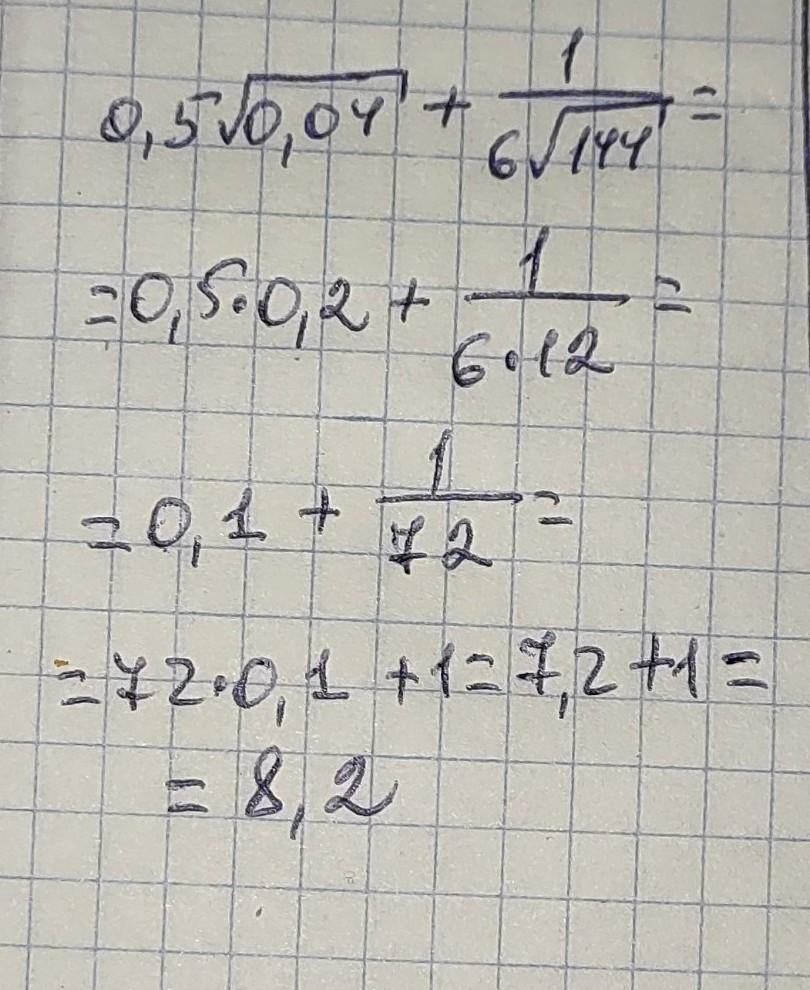 0,5√0,04 + 1/(6√144) =
= 0,5·0,2 + 1/(6·12) =
= 0,1 + 1/72 =
= 72·0,1 + 1 = 7,2 + 1 =
= 8,2